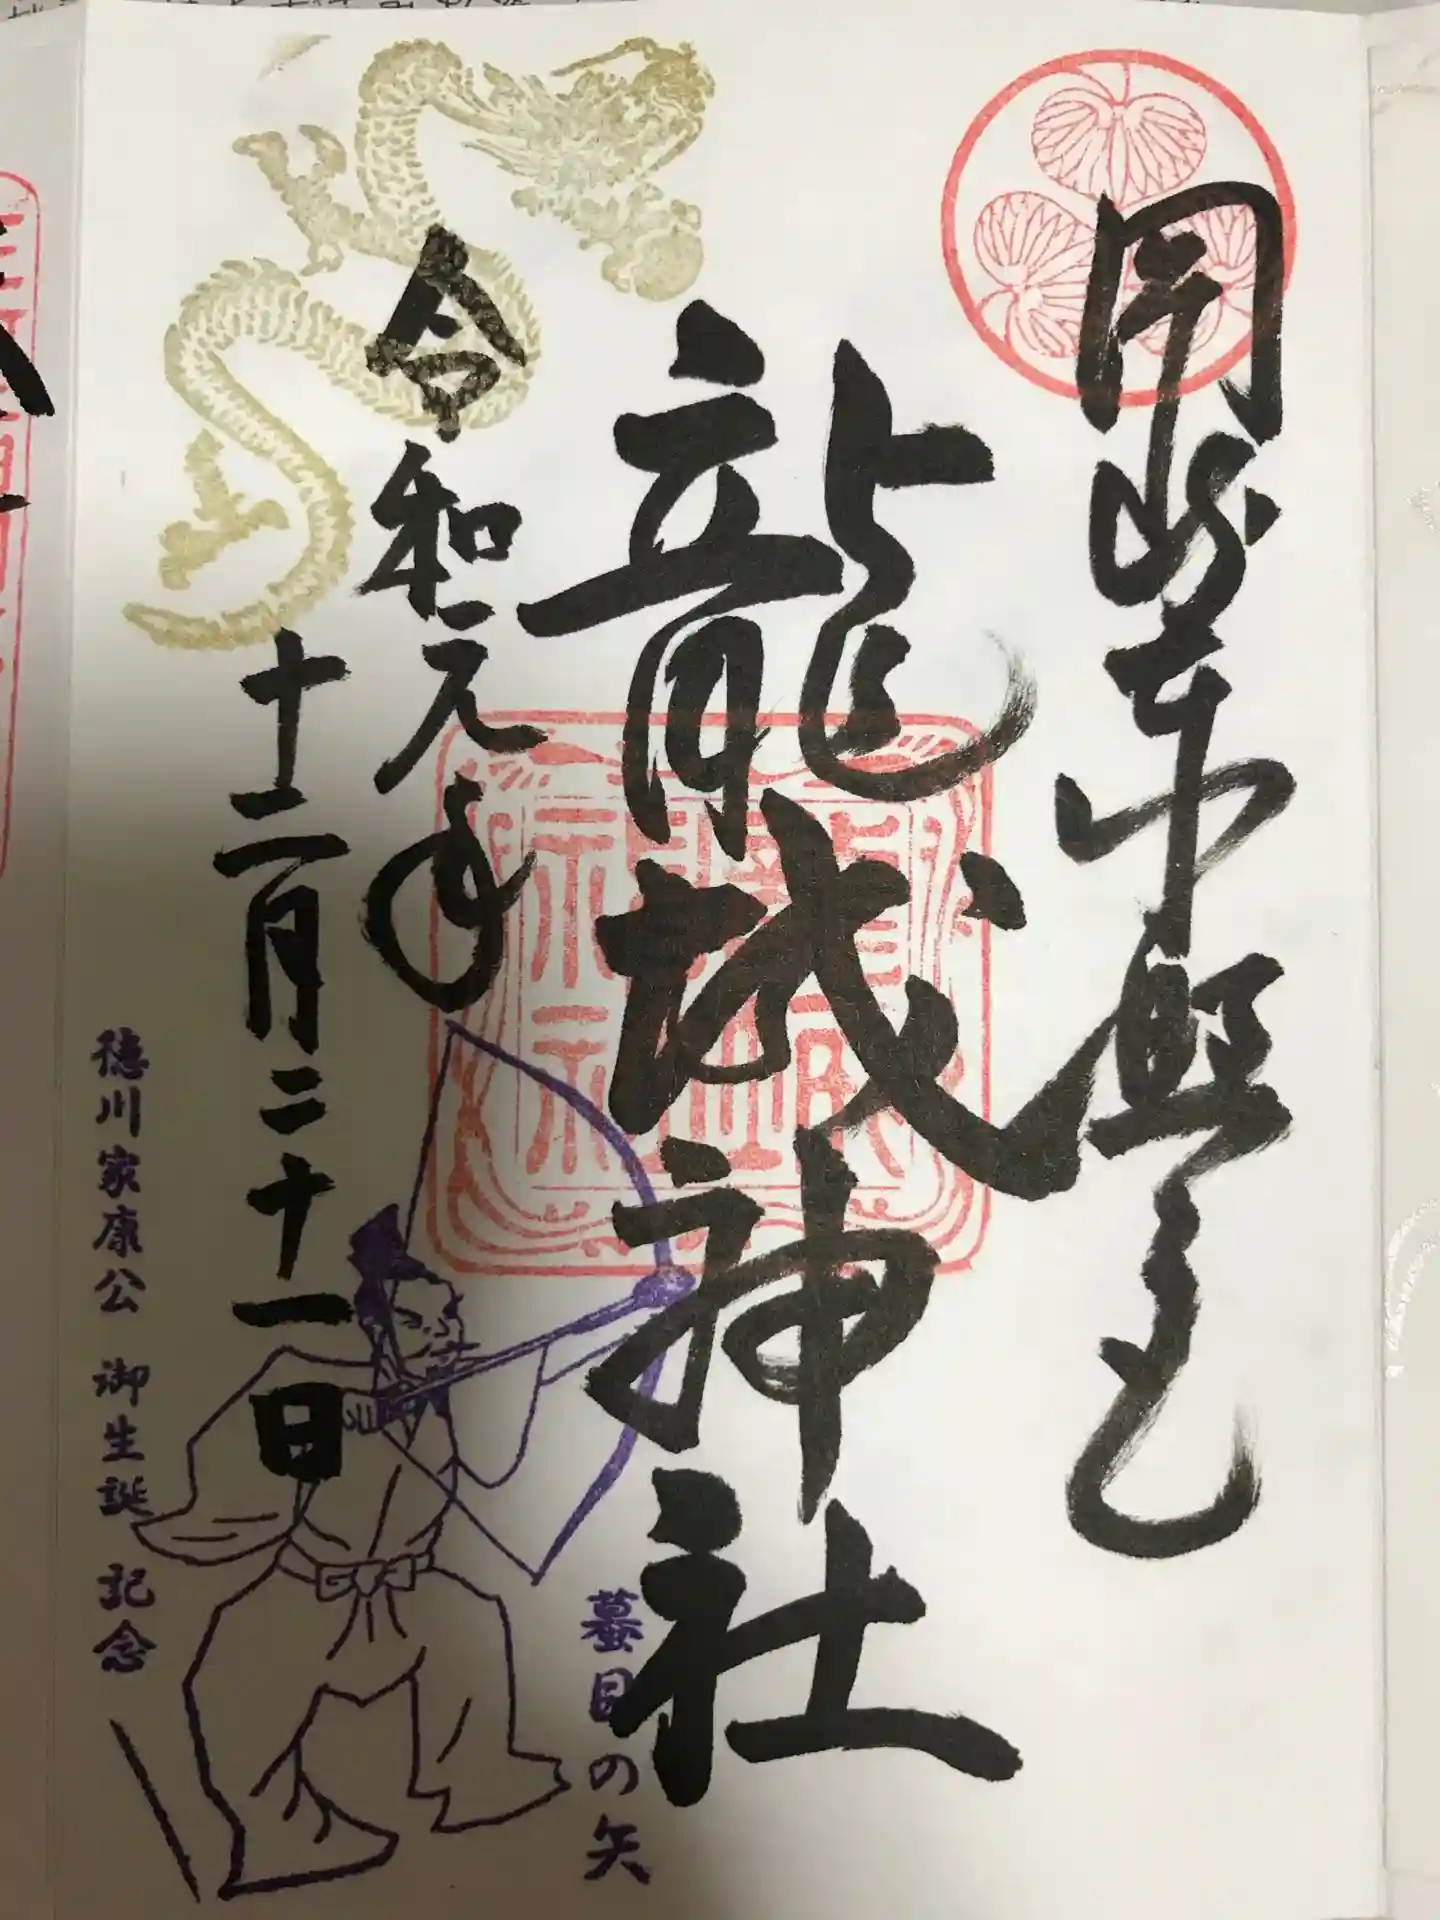 岡崎本丸
龍城神社
令和元年
十二月二十一日
龍城神社
蟇目の矢
徳川家康公 御生誕 記念